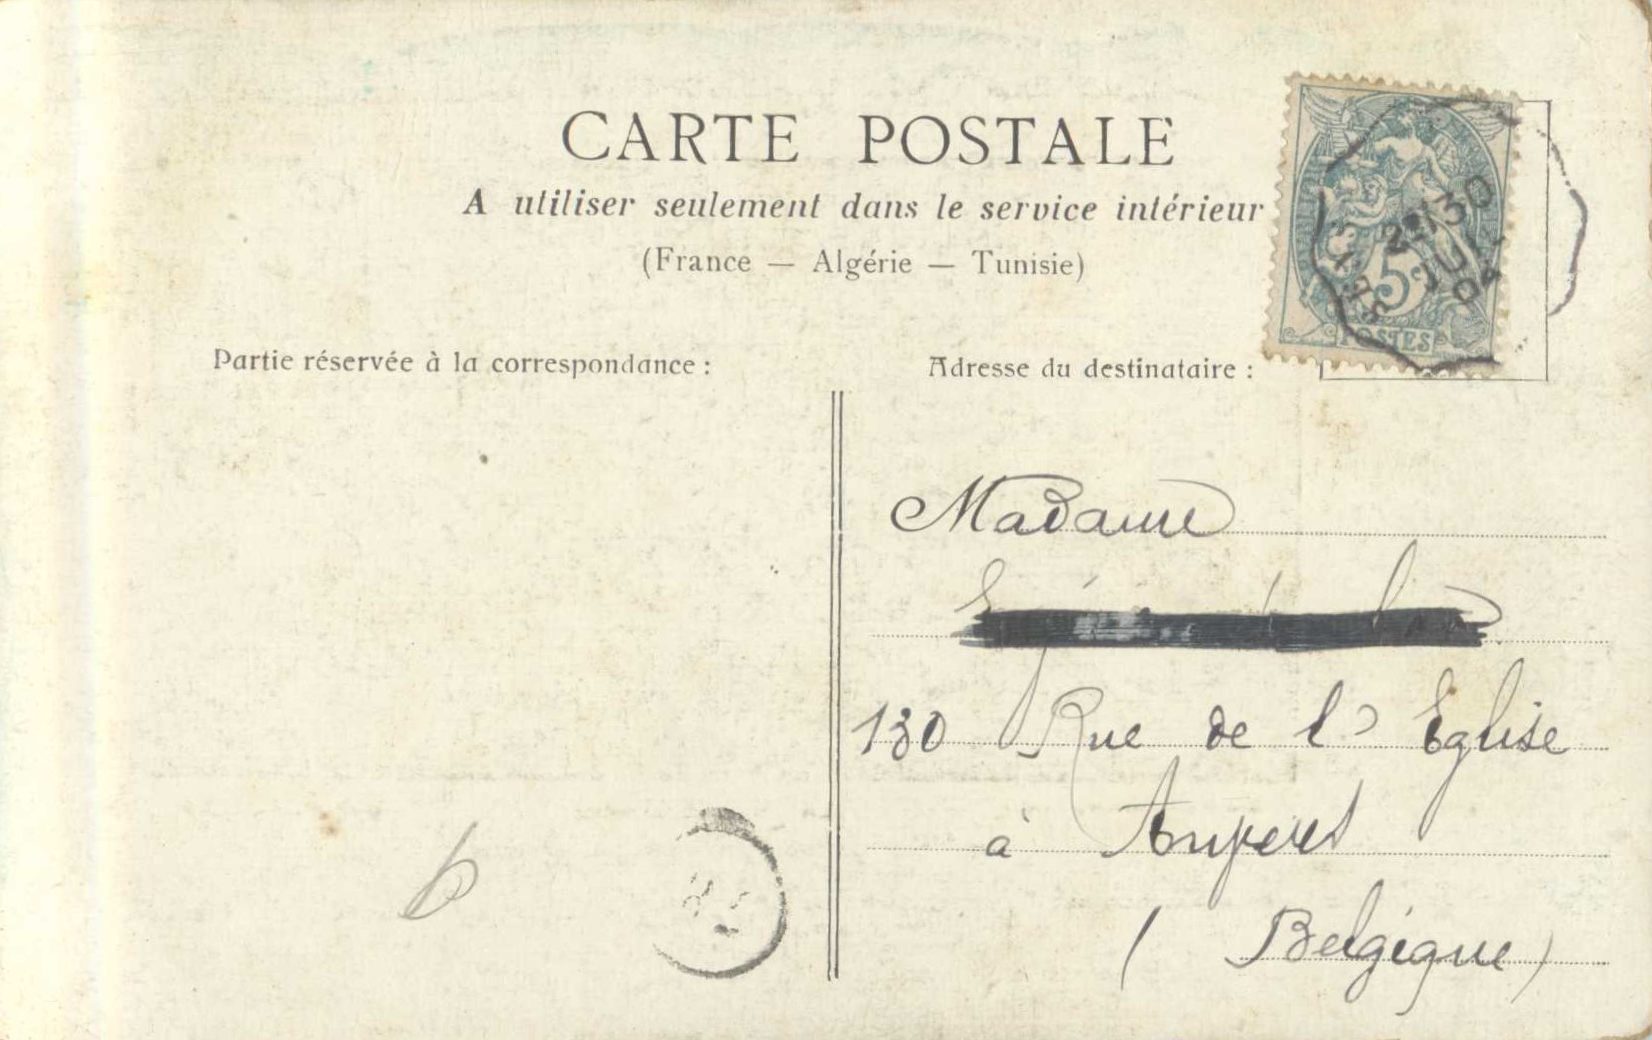 CARTE POSTALE
A utiliser seulement dans le service intérieur
(France — Algérie — Tunisie)
5c
POSTES
2E/30
JUIL
04
Partie réservée à la correspondance :
Adresse du destinataire :
Madame
130 Rue de l' Eglise
à Anvers
(Belgique)
6